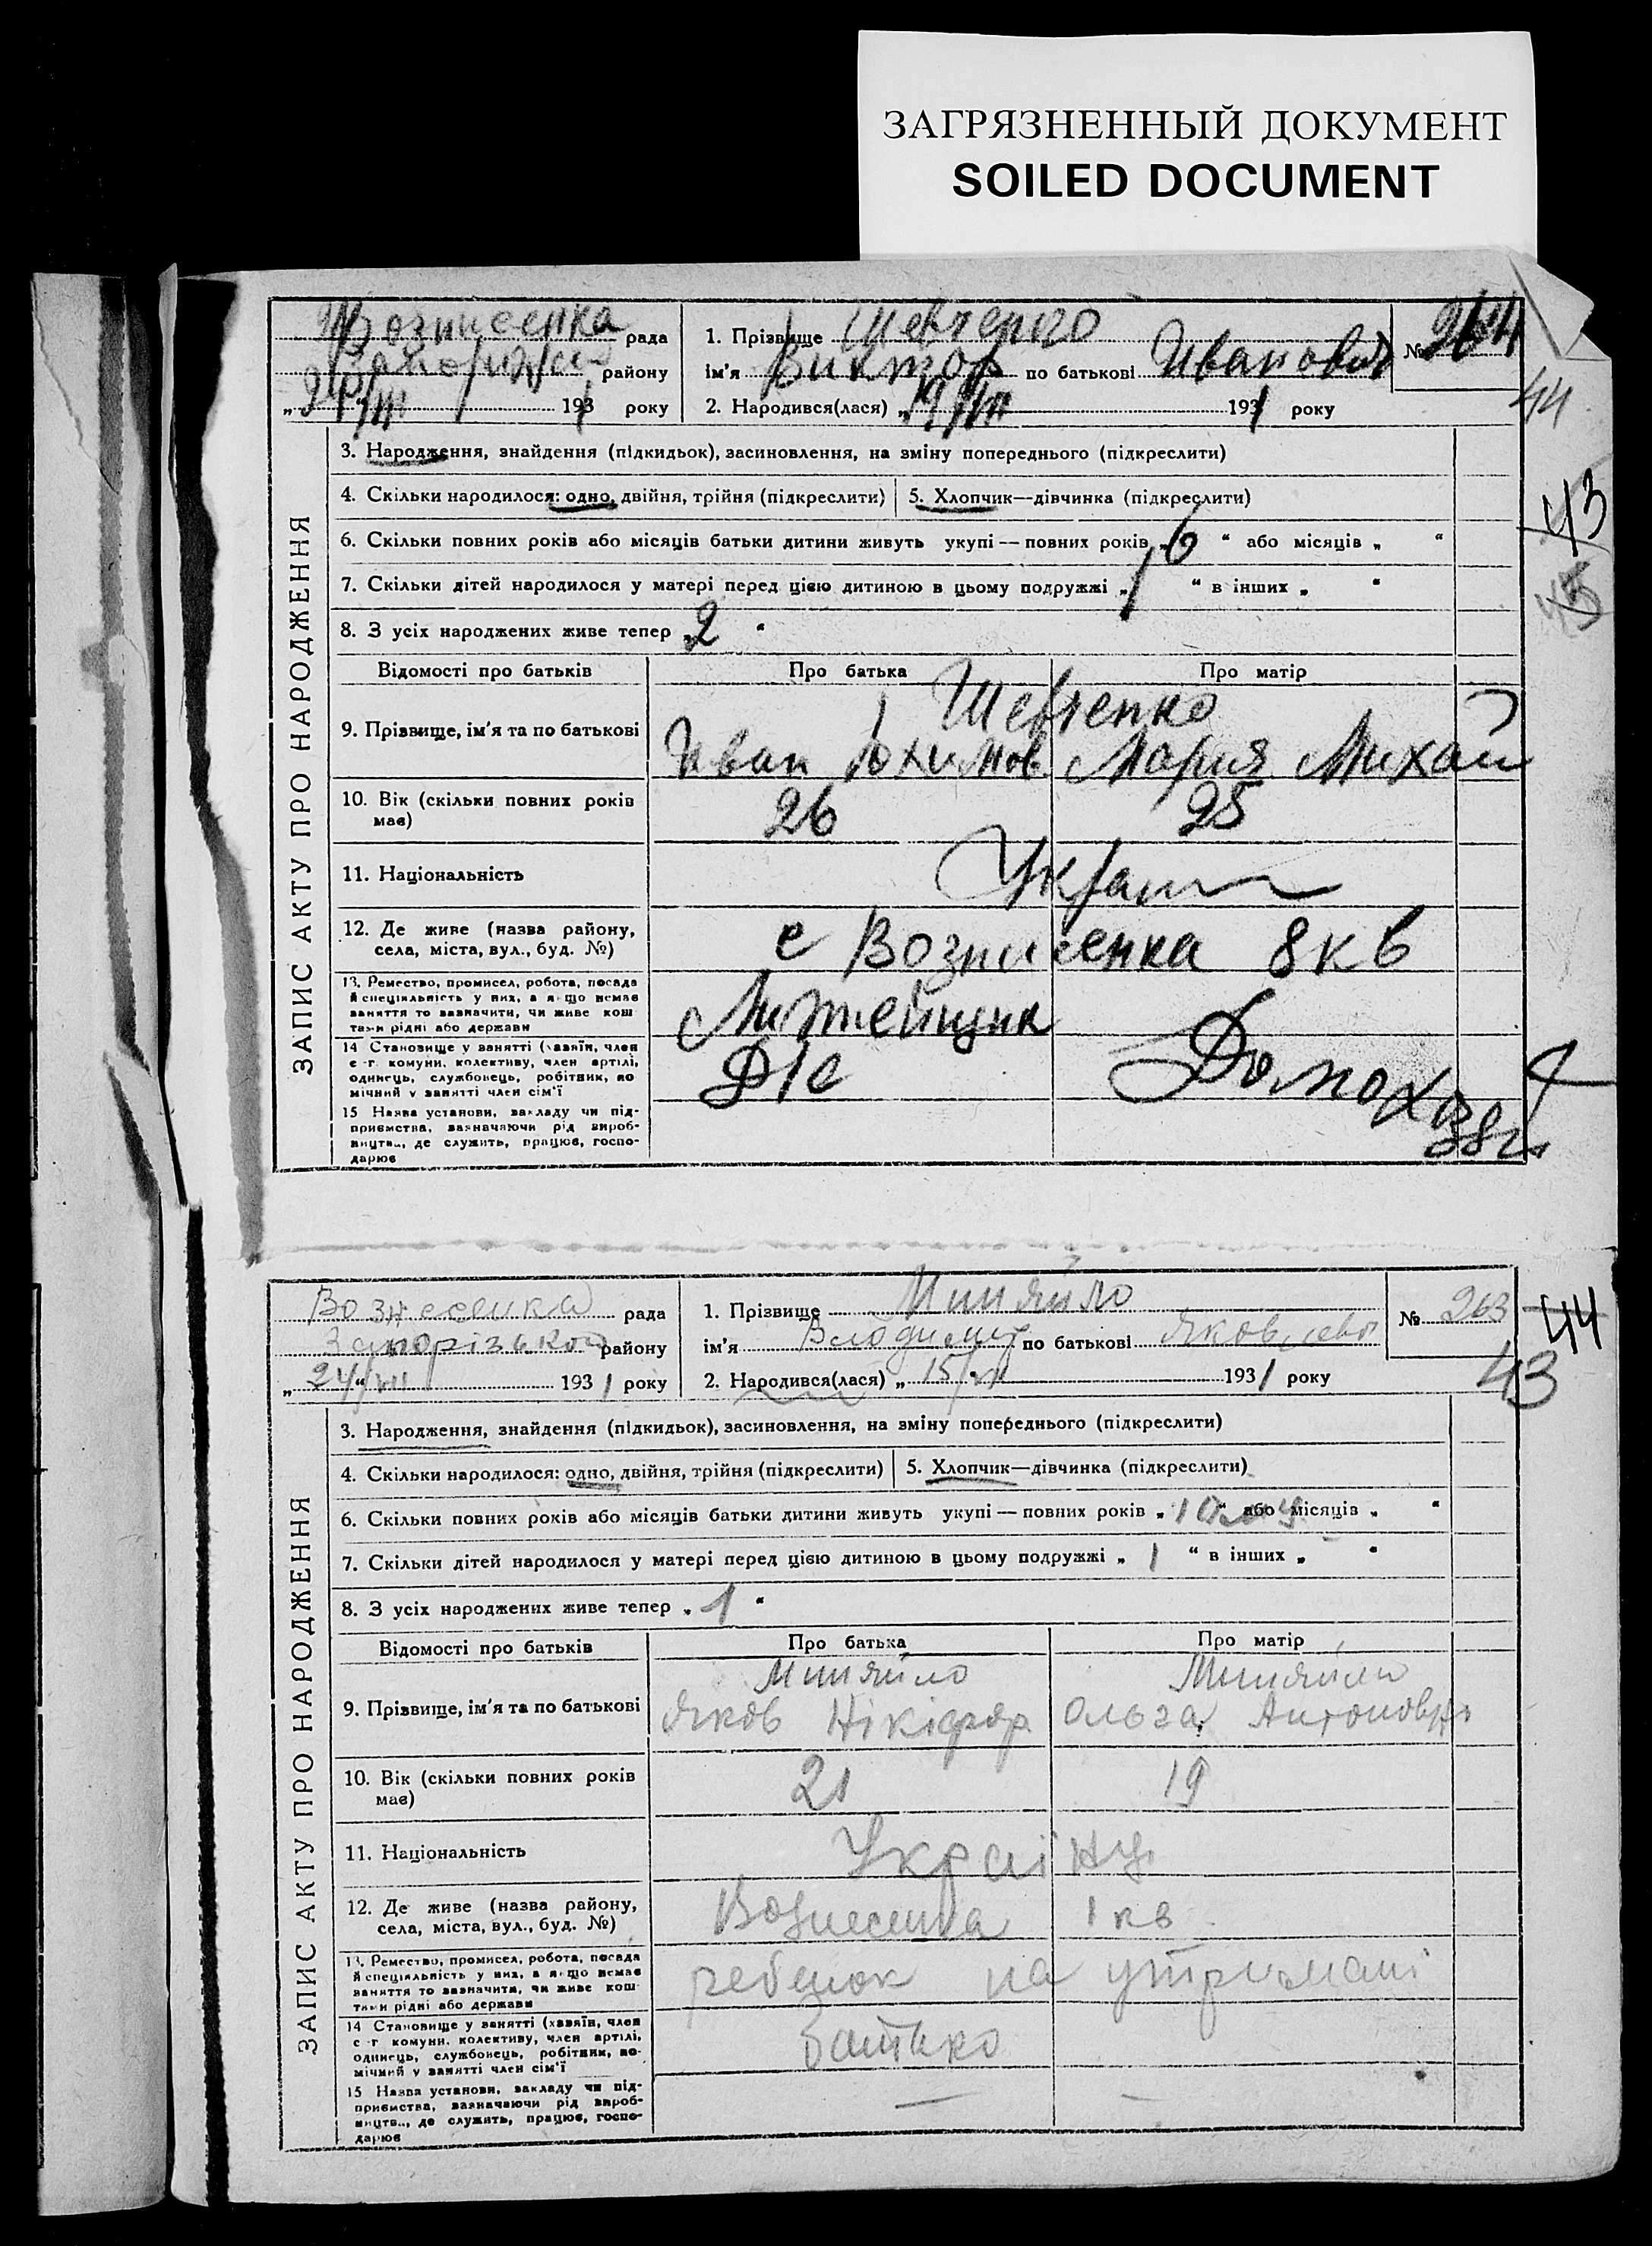 ЗАГРЯЗНЕННЫЙ ДОКУМЕНТ
SOILED DOCUMENT
рада 1. Прізвище Шевченко № 264
району ім'я Виктор по батькові Иванович
1931 року 2. Народився(лася) „ 1931 року
44
ЗАПИС АКТУ ПРО НАРОДЖЕННЯ
3. Народження, знайдення (підкидьок), засиновлення, на зміну попереднього (підкреслити)
4. Скільки народилося: одно, двійня, трійня (підкреслити) 5. Хлопчик—дівчинка (підкреслити)
43
6. Скільки повних років або місяців батьки дитини живуть укупі — повних років „6“ або місяців „ “
7. Скільки дітей народилося у матері перед цією дитиною в цьому подружжі „1“ в інших „ “
45
8. З усіх народжених живе тепер „2“
Відомості про батьків Про батька Про матір
Шевченко
9. Прізвище, ім'я та по батькові Иван Юхимов Мария Михай
10. Вік (скільки повних років має) 26 25
11. Національність Украин
12. Де живе (назва району, села, міста, вул., буд. №) с Вознисенка 8 кв
13. Ремество, промисел, робота, посада й спеціяльність у них, а якщо немає заняття то зазначити, чи живе коштами рідні або держави Литейщик
14 Становище у занятті (хазяїн, член с.-г. комуни, колективу, член артілі, одинець, службовець, робітник, помічний у занятті член сім'ї
15 Назва установи, закладу чи підприємства, зазначаючи рід виробництва, де служить, працює, господарює
Вознесенка рада 1. Прізвище Миняйло № 263
44
Запорізького району ім'я Володимир по батькові Яковлевич
„24/VIII“ 1931 року 2. Народився(лася) „15 1931 року
43
ЗАПИС АКТУ ПРО НАРОДЖЕННЯ
3. Народження, знайдення (підкидьок), засиновлення, на зміну попереднього (підкреслити)
4. Скільки народилося: одно, двійня, трійня (підкреслити) 5. Хлопчик—дівчинка (підкреслити)
6. Скільки повних років або місяців батьки дитини живуть укупі — повних років „1 “ або місяців „ “
7. Скільки дітей народилося у матері перед цією дитиною в цьому подружжі „1“ в інших „ “
8. З усіх народжених живе тепер „1“
Відомості про батьків Про батька Про матір
Миняйло Миняйло
9. Прізвище, ім'я та по батькові Яков Нікіфор Ольга Антоновна
10. Вік (скільки повних років має) 21 19
11. Національність Україну
12. Де живе (назва району, села, міста, вул., буд. №) Вознесенка 1 кв
13. Ремество, промисел, робота, посада й спеціяльність у них, а якщо немає заняття то зазначити, чи живе коштами рідні або держави ребенок на утримані
14 Становище у занятті (хазяїн, член с.-г. комуни, колективу, член артілі, одинець, службовець, робітник, помічний у занятті член сім'ї батько
15 Назва установи, закладу чи підприємства, зазначаючи рід виробництва, де служить, працює, господарює — —